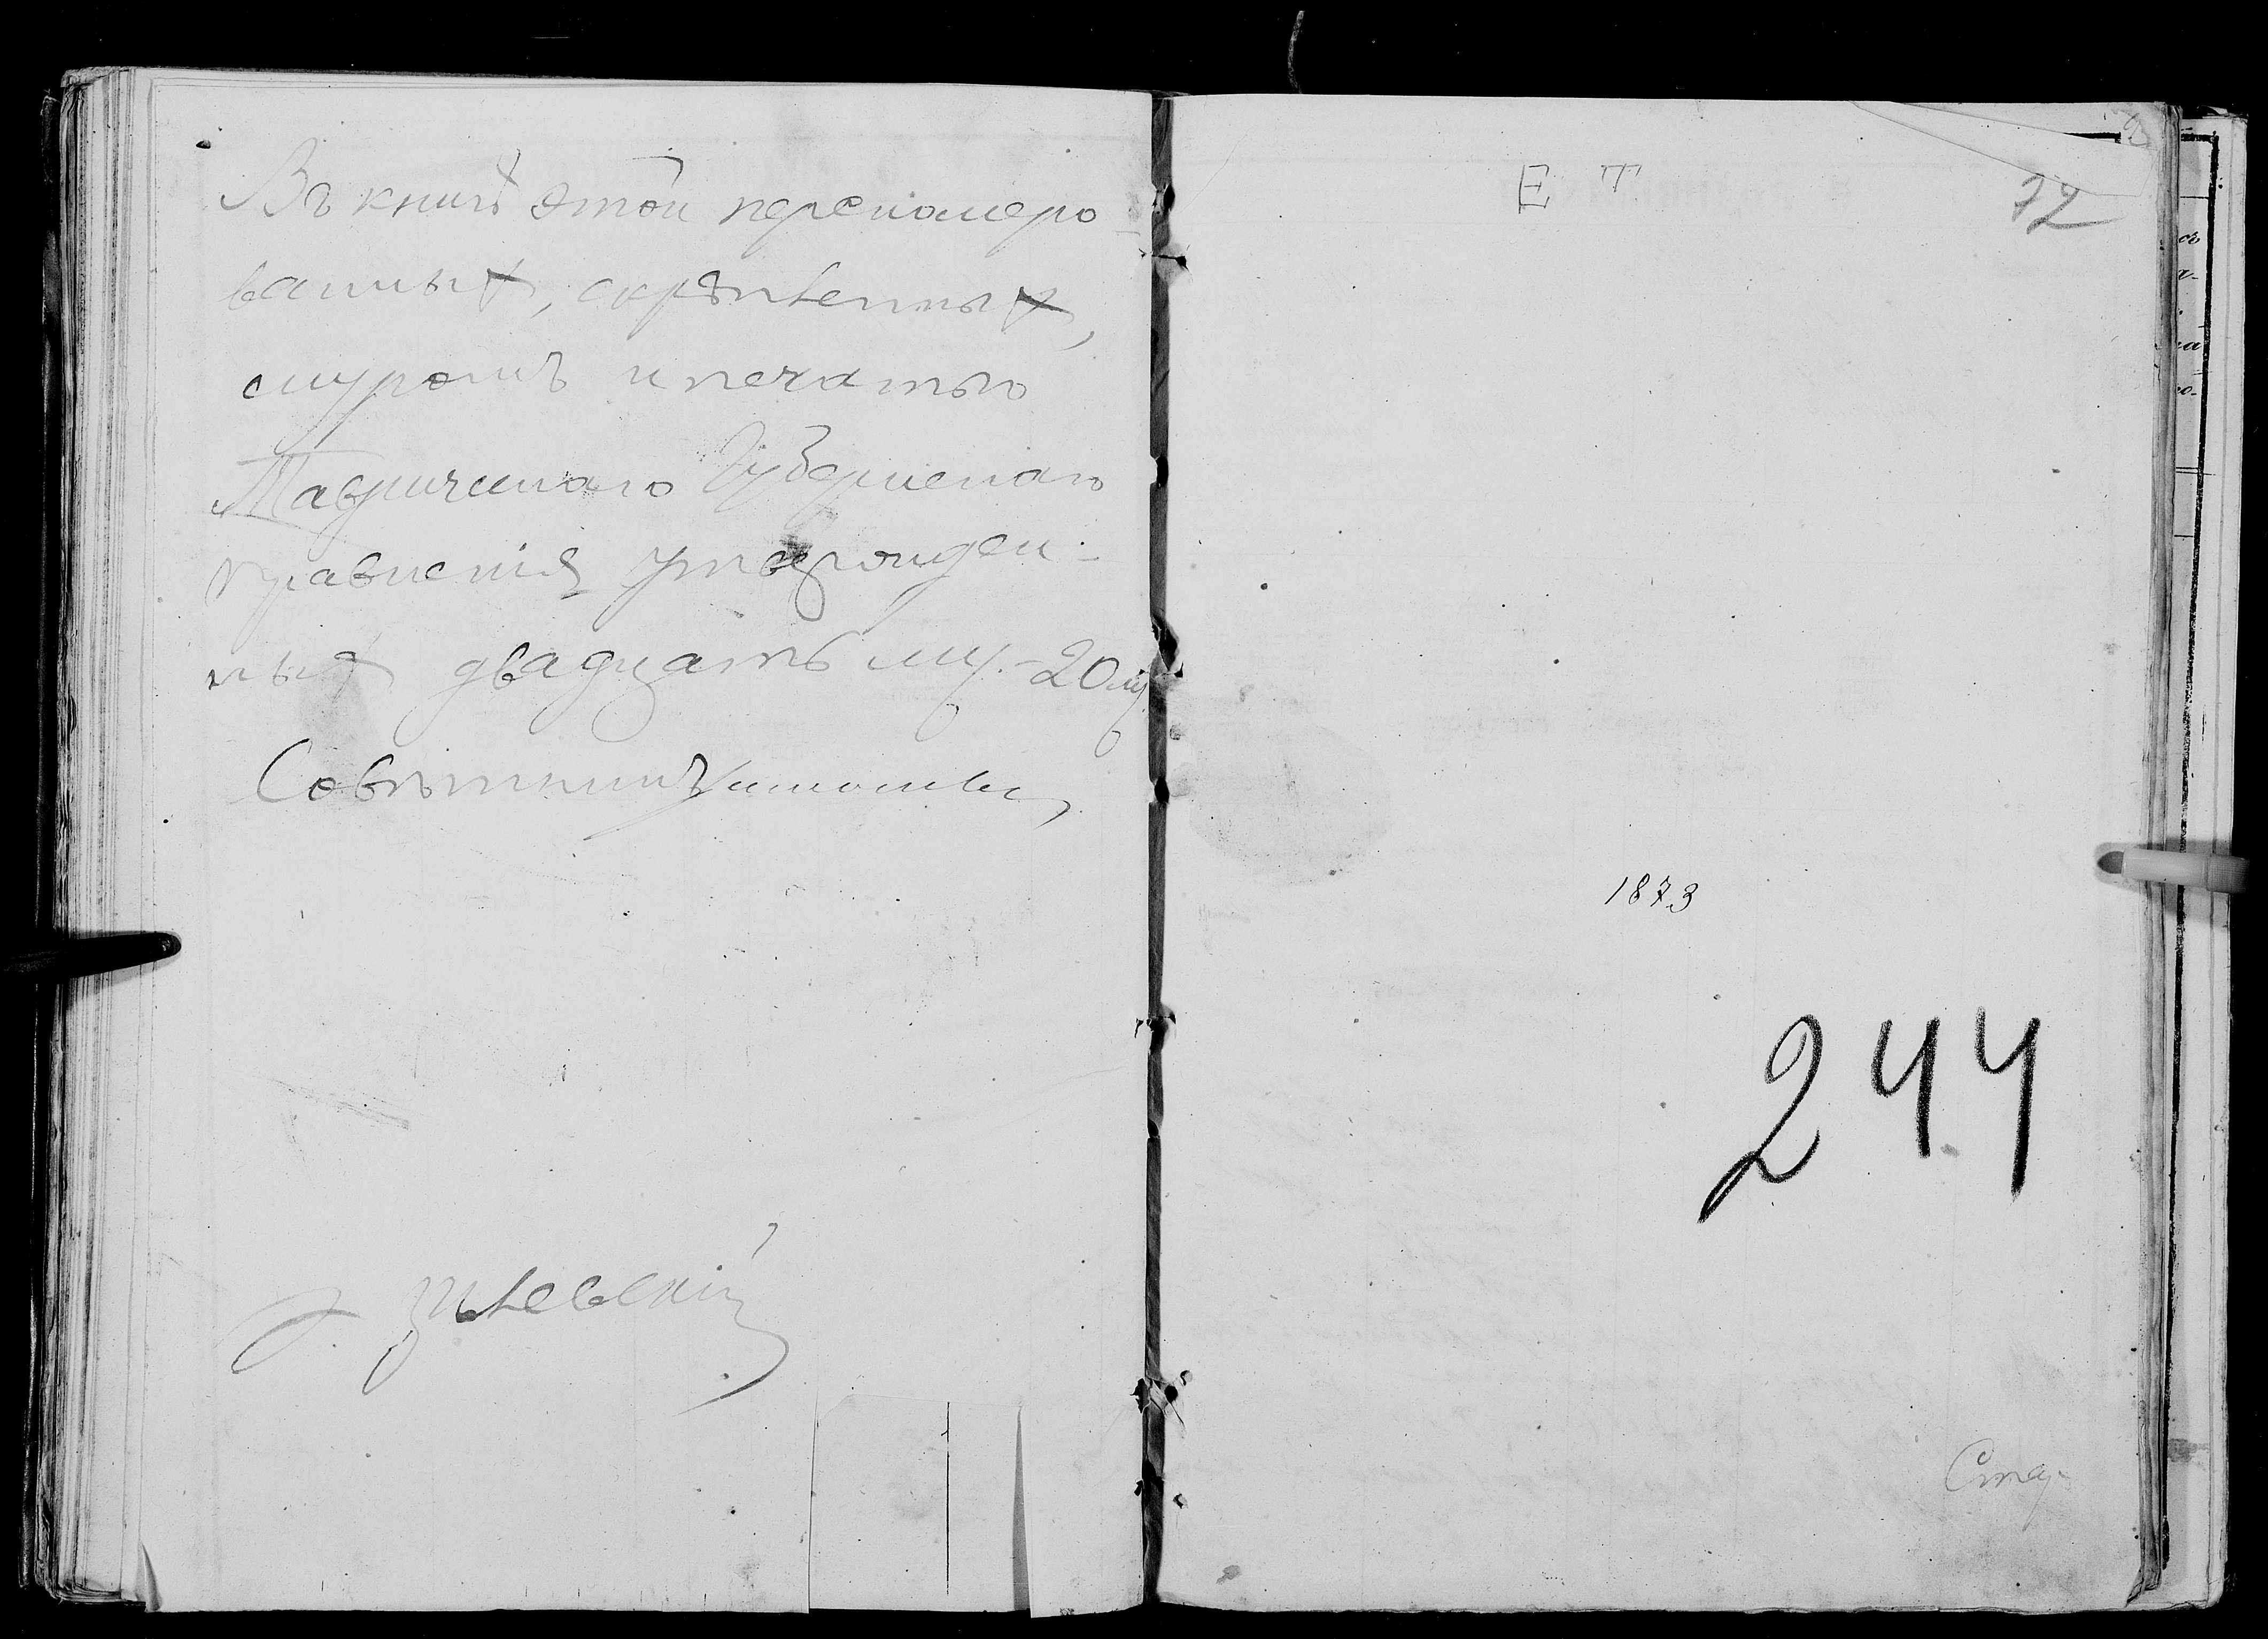 Въ книгѣ этой перенумеро-
ванныхъ, скрѣпленныхъ,
шнуромъ и печатью
Таврическаго Губернскаго
Правленія утвержден-
ныхъ двадцать лис. - 20 лис.
Совѣтникъ
Е Т
72
1873
244